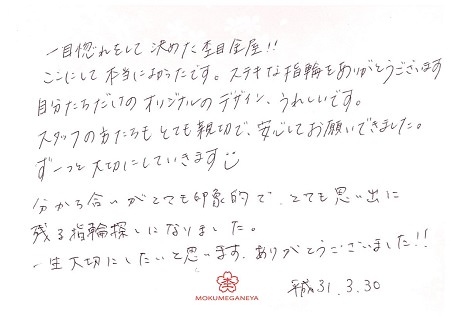 一目惚れをして決めた杢目金屋!!
ここにして本当によかったです。ステキな指輪をありがとうございます
自分たちだけのオリジナルのデザイン、うれしいです。
スタッフの方たちもとても親切で、安心してお願いできました。
ずーっと大切にしていきます
分かち合いがとても印象的で、とても思い出に
残る指輪探しになりました。
一生大切にしたいと思います。ありがとうございました!!
杢
MOKUMEGANEYA
平成31.3.30